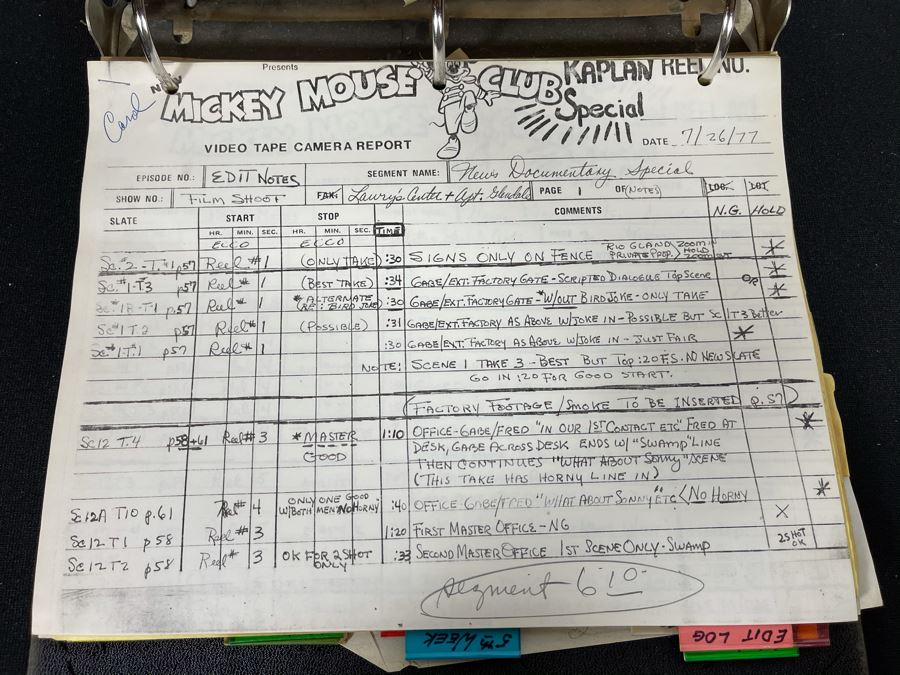 Presents
Carol
NEW MICKEY MOUSE CLUB KAPLAN REEL NO.
Special
VIDEO TAPE CAMERA REPORT DATE 7/26/77
EPISODE NO.: EDIT NOTES SEGMENT NAME: News Documentary Special
SHOW NO.: FILM SHOOT FAX: Lawry's Center + Apt. Glendale PAGE 1 OF (NOTES) LOG. LOT
SLATE START STOP TIME COMMENTS N.G. HOLD
HR. MIN. SEC. HR. MIN. SEC.
ECCO ECCO
Sc. 2 - T.#1 p57 Reel #1 (ONLY TAKE) :30 SIGNS ONLY ON FENCE RIO GLAND ZOOM IN HOLD
PRIVATE PROP.
Sc. #1-T3 p57 Reel # 1 (BEST TAKE) :34 GABE/EXT. FACTORY GATE - SCRIPTED DIALOGUE TOP SCENE
Sc #1B-T-1 p57 Reel # 1 * ALTERNATE RE: BIRD JOKE :30 GABE/EXT. FACTORY GATE - W/OUT BIRD JOKE - ONLY TAKE OR
Sc #1 T.2 p57 Reel # 1 (POSSIBLE) :31 GABE/EXT. FACTORY AS ABOVE W/JOKE IN - POSSIBLE BUT Sc 1 T3 Better
Sc #1-T.1 p57 Reel # 1 :30 GABE/EXT. FACTORY AS ABOVE W/JOKE IN - JUST FAIR
NOTE: SCENE 1 TAKE 3 - BEST BUT TOP :20 F.S. NO NEW SLATE
GO IN :20 FOR GOOD START.
(FACTORY FOOTAGE/SMOKE TO BE INSERTED p.57)
Sc12 T.4 p58+61 Reel # 3 * MASTER 1:10 OFFICE - GABE/FRED "IN OUR 1ST CONTACT ETC" FRED AT
GOOD DESK, GABE ACROSS DESK ENDS W/ "SWAMP" LINE
THEN CONTINUES "WHAT ABOUT SONNY" SCENE
(THIS TAKE HAS HORNY LINE IN)
Sc12A T10 p.61 Reel # 4 ONLY ONE GOOD W/BOTH MEN NO HORNY :40 OFFICE - GABE/FRED "WHAT ABOUT SONNY" ETC < NO HORNY
Sc12 T1 p58 Reel # 3 1:20 FIRST MASTER OFFICE - NG X
Sc12 T2 p58 Reel # 3 OK FOR 2 SHOT ONLY :33 SECOND MASTER OFFICE 1ST SCENE ONLY - SWAMP 2 SHOT OK
Segment 6:10
5TH WEEK
EDIT LOG